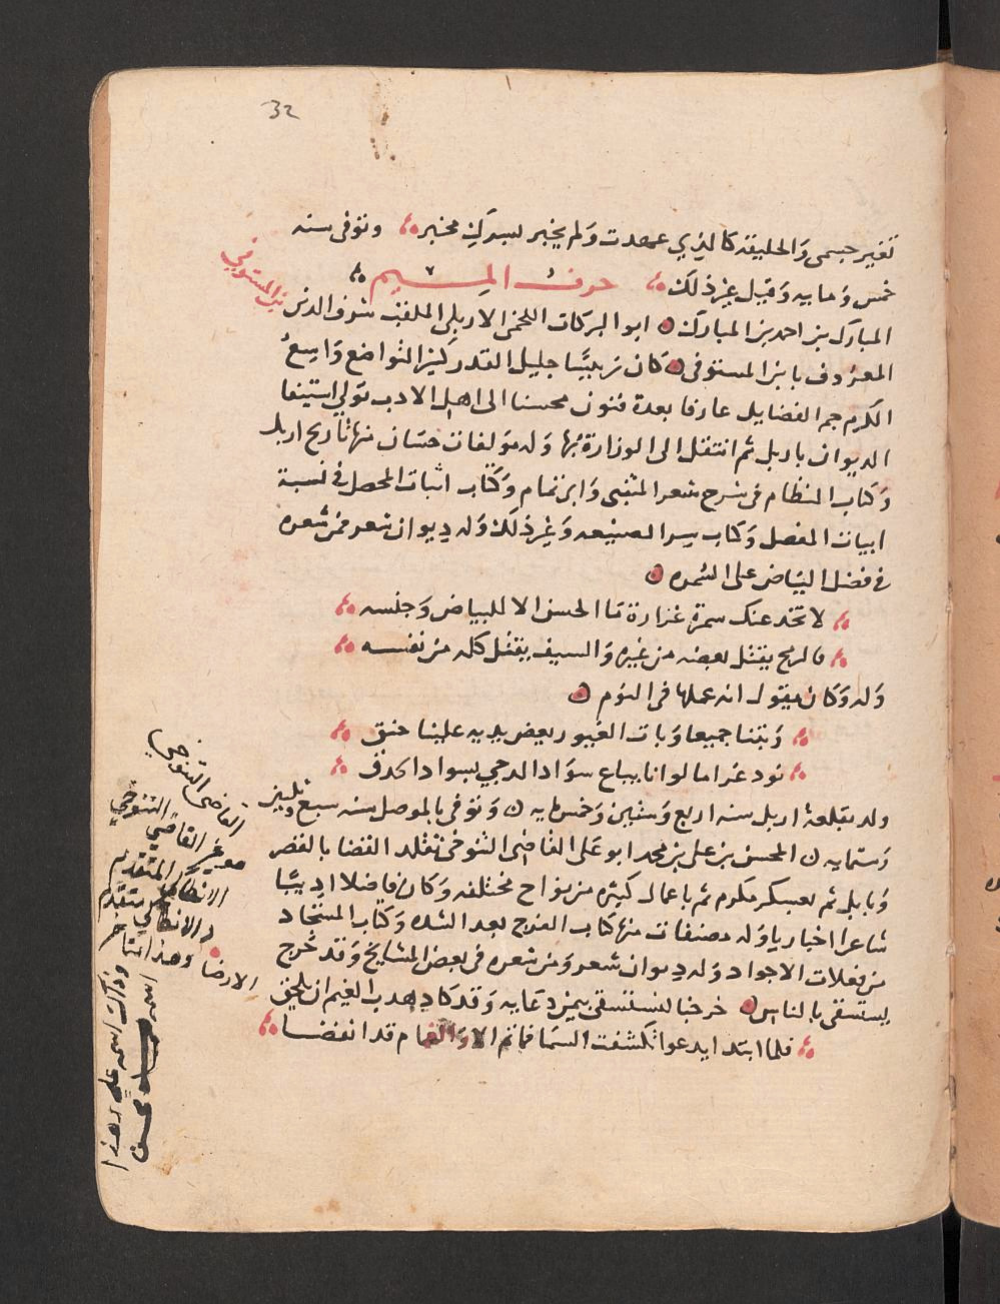 32
تغير جسمى والخليقة كالذي عهدت ولم يخبر لسوك مخبر وتوفى سنه
خمس ومايه وقيل غير ذلك حرف الميم
ابن المستوفي
المبارك بن احمد بن المبارك ابو البركات اللخمى الاربلى الملقب شرف الدين
المعروف بابن المستوفى كان رئيسا جليل القدر كثير التواضع واسع
الكرم جم الفضايل عارفا بعدة فنون محسنا الى اهل الادب تولى استيفا
الديوان باربل ثم انتقل الى الوزارة بها وله مؤلفات حسان منها تاريخ اربل
وكتاب النظام فى شرح شعر المتنبى وابن تمام وكتاب اثبات المحصل فى نسبة
ابيات المفصل وكتاب سر الصنيعه وغير ذلك وله ديوان شعر فمن شعره
فى فضل البياض على السمره
لا تخدعنك سمرة غرارة ما الحسن الا للبياض وجنسه
فالرمح يقتل بعضه من غيره والسيف يقتل كله من نفسه
وله وكان يقول انه عملها فى النوم
وبتنا جميعا وبات الغيور يعض يديه علينا حنق
نود غراما لو انا يباع سواد الدجي بسواد الحدق
ولد بقلعة اربل سنه اربع وستين وخمسمايه وتوفى بالموصل سنه سبع وثلثين
وستمايه المحسن بن على بن محمد ابو على القاضى التنوخى تقلد القضا بالقصر
وبابل ثم بعسكر مكرم ثم باعمال كثيره من نواح مختلفه وكان فاضلا اديبا
شاعرا اخباريا وله مصنفات منها كتاب الفرج بعد الشده وكتاب المستجاد
من فعلات الاجواد وله ديوان شعر ومن شعره فى بعض المشايخ وقد خرج
يستسقى بالناس خرجنا لنستسقى بيمن دعايه وقد كاد هدب الغيم ان يلحق
الارضا
فلما ابتدا يدعوا تكشفت السما فما تم الا والغمام قد انفضا
القاضى التنوخي
هو غير القاضي التنوخي
الانطاكي المتقدم
الانطاكي متقدم
وهذا متاخر
وذاك اسمه على وهذا
اسمه محسن